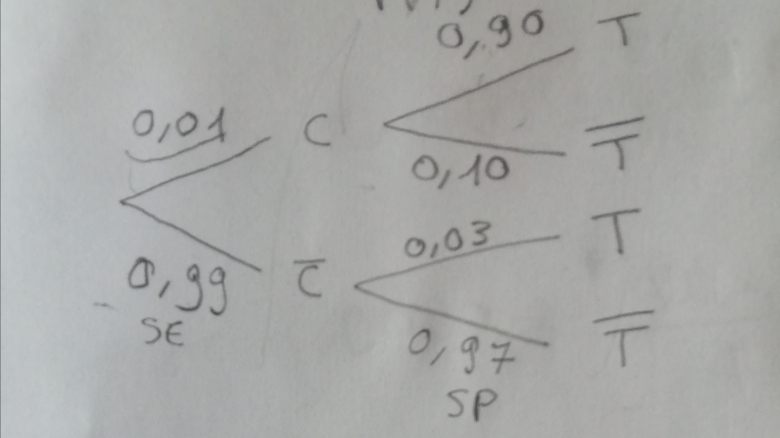 0,90 T
0,01 C
0,10 T̅
0,03 T
0,99 C̅
SE
0,97 T̅
SP